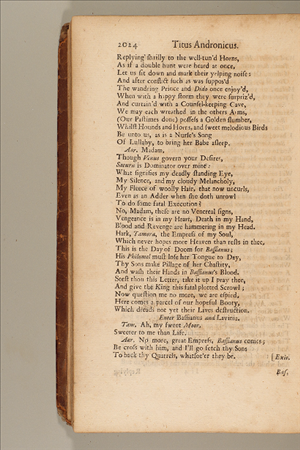 2024 Titus Andronicus.
Replying shrilly to the well-tun'd Horns,
As if a double hunt were heard at once,
Let us sit down and mark their yelping noise:
And after conflict such as was suppos'd
The wandring Prince and Dido once enjoy'd,
When with a happy storm they were surpriz'd,
And curtain'd with a Counsel-keeping Cave,
We may each wreathed in the others Arms,
(Our Pastimes done) possess a Golden slumber,
Whilst Hounds and Horns, and sweet melodious Birds
Be unto us, as is a Nurse's Song
Of Lullaby, to bring her Babe asleep.
Aar. Madam,
Though Venus govern your Desires,
Saturn is Dominator over mine:
What signifies my deadly standing Eye,
My Silence, and my cloudy Melancholy,
My Fleece of woolly Hair, that now uncurls,
Even as an Adder when she doth unrowl
To do some fatal Execution?
No, Madam, these are no Venereal signs,
Vengeance is in my Heart, Death in my Hand,
Blood and Revenge are hammering in my Head.
Hark, Tamora, the Empress of my Soul,
Which never hopes more Heaven than rests in thee,
This is the Day of Doom for Bassianus;
His Philomel must lose her Tongue to Day,
Thy Sons make Pillage of her Chastity,
And wash their Hands in Bassianus's Blood.
Seest thou this Letter, take it up I pray thee,
And give the King this fatal plotted Scrowl;
Now question me no more, we are espied,
Here comes a parcel of our hopeful Booty,
Which dreads not yet their Lives destruction.
Enter Bassianus and Lavinia.
Tam. Ah, my sweet Moor,
Sweeter to me than Life.
Aar. No more, great Empress, Bassianus comes;
Be crost with him, and I'll go fetch thy Sons
To back thy Quarrels, whatsoe'er they be. [Exit.
Bas.